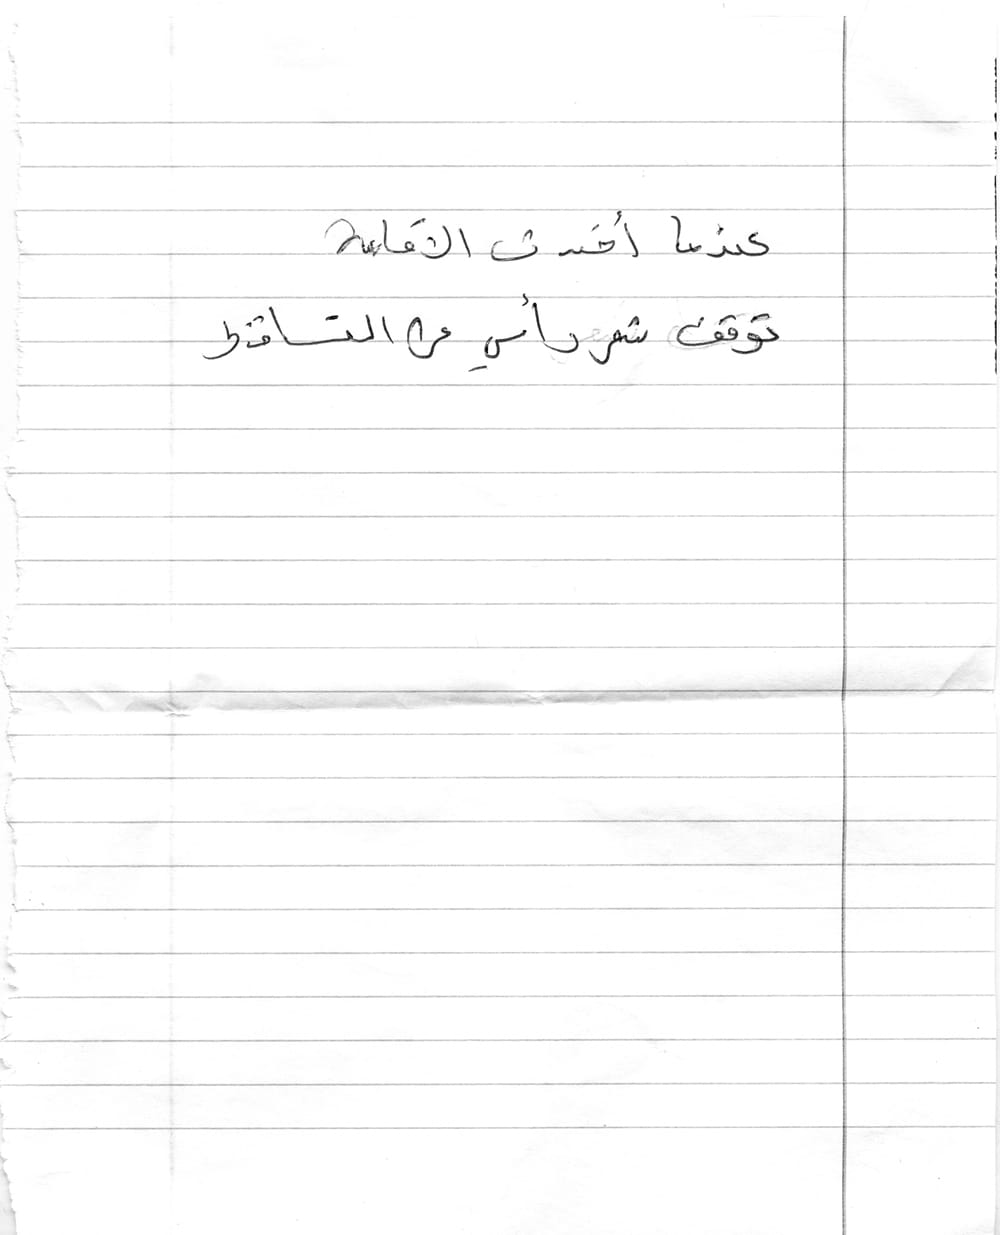 عندما أخدت الاقامة
توقف شعر رأسي عن التساقط